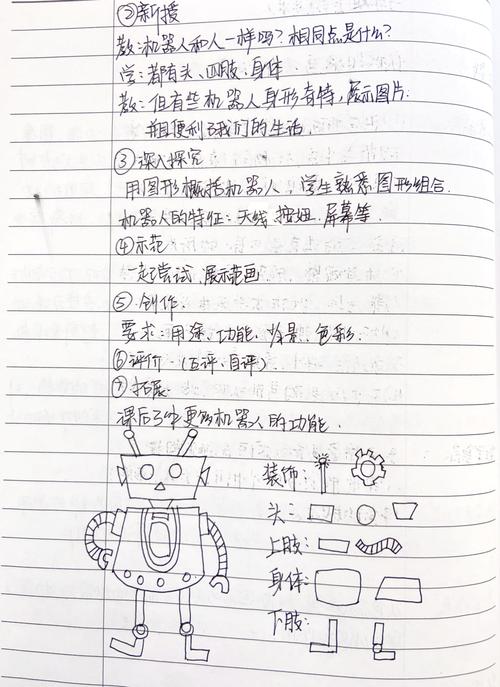 ②新授
教:机器人和人一样吗?相同点是什么?
学:都有头、四肢、身体
教:但有些机器人身形奇特,展示图片.
并且便利了我们的生活.
③深入探究
用图形概括机器人,学生熟悉图形组合.
机器人的特征:天线、按钮、屏幕等.
④示范
一起尝试,展示范画
⑤创作.
要求:用途、功能、背景、色彩.
⑥评价(互评、自评).
⑦拓展
课后了解更多机器人的功能.
装饰:
头:
上肢:
身体:
下肢: